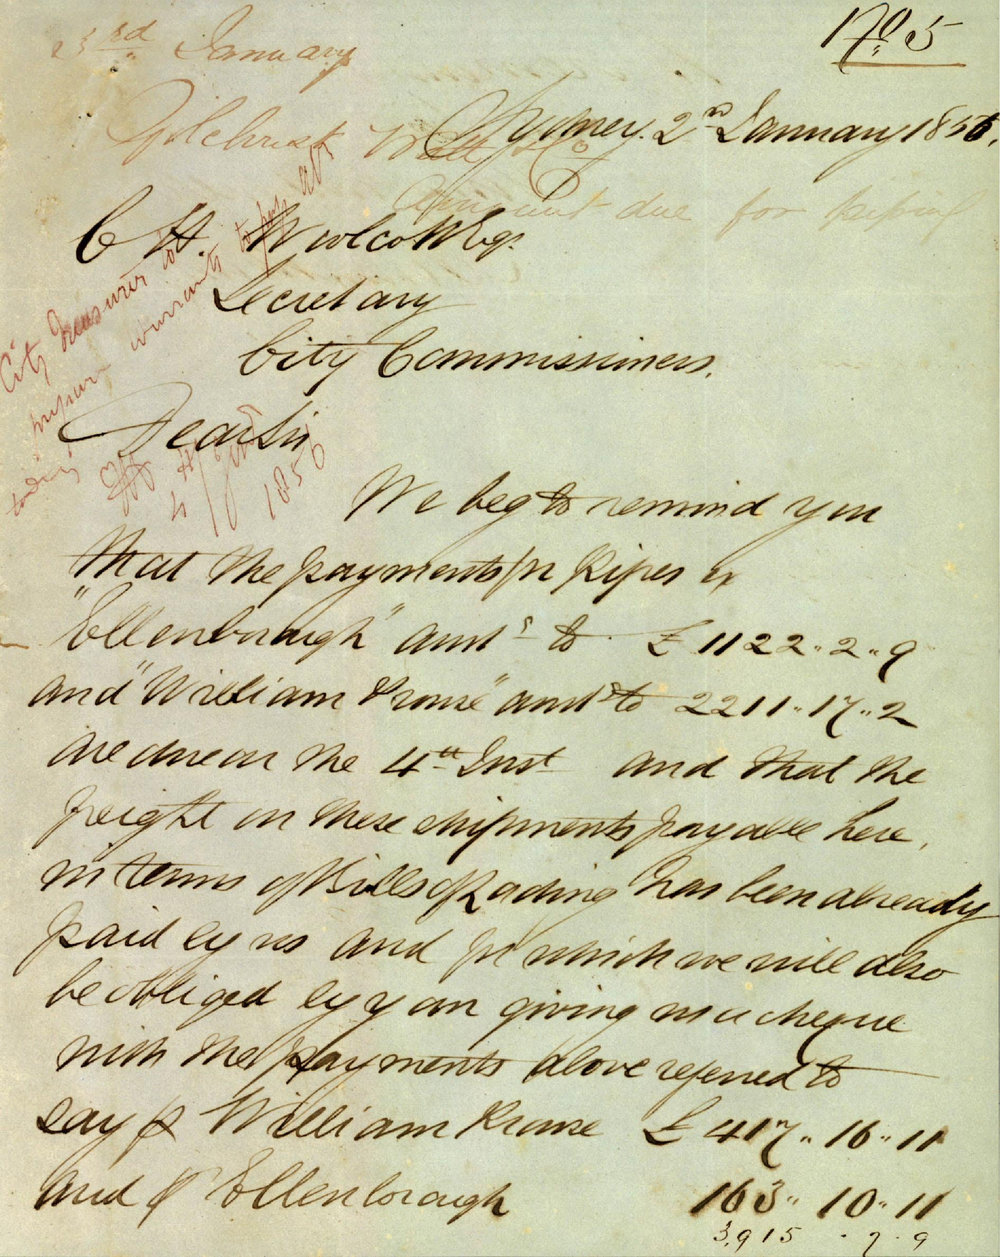 17.05
3rd January
Sydney. 2nd January 1856.
Gilchrist Watt & Co
Amount due for piping
C H. Woolcott Esqr
Secretary
City Commissioners.
City Treasurer to
prepare warrants to pay at
today
4/Jan
1856
Dear Sir
We beg to remind you
that the payments for pipes ex
"Ellenborough" amts to £1122..2..9
and "William Prowse" amts to 2211..17..2
are due on the 4th Inst and that the
freight on these shipments payable here,
in terms of Bills of Lading has been already
paid by us and for which we will also
be obliged by your giving us a cheque
with the payments above referred to
say p William Prowse £417..16..11
and p Ellenborough 163..10..11
3,915.7.9